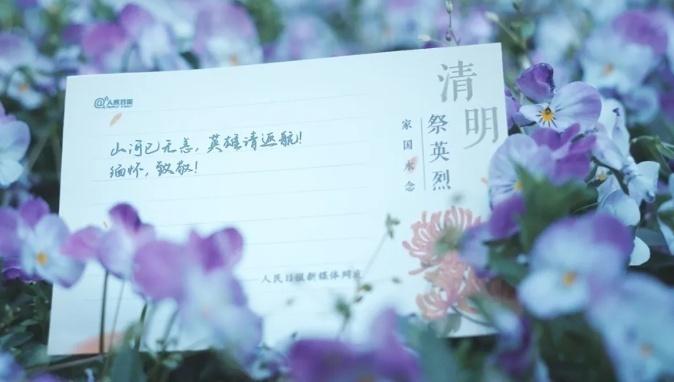 @人民日报
山河已无恙，英雄请返航！
缅怀，致敬！
人民日报新媒体网友
清明
祭英烈
家国永念